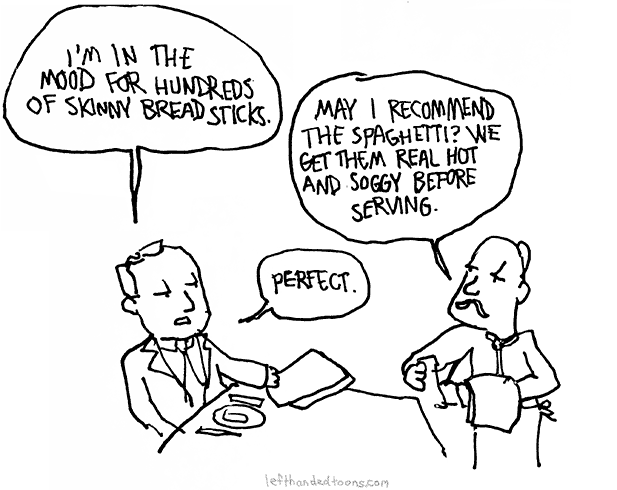 I'M IN THE
MOOD FOR HUNDREDS
OF SKINNY BREAD STICKS.
MAY I RECOMMEND
THE SPAGHETTI? WE
GET THEM REAL HOT
AND SOGGY BEFORE
SERVING.
PERFECT.
lefthandedtoons.com